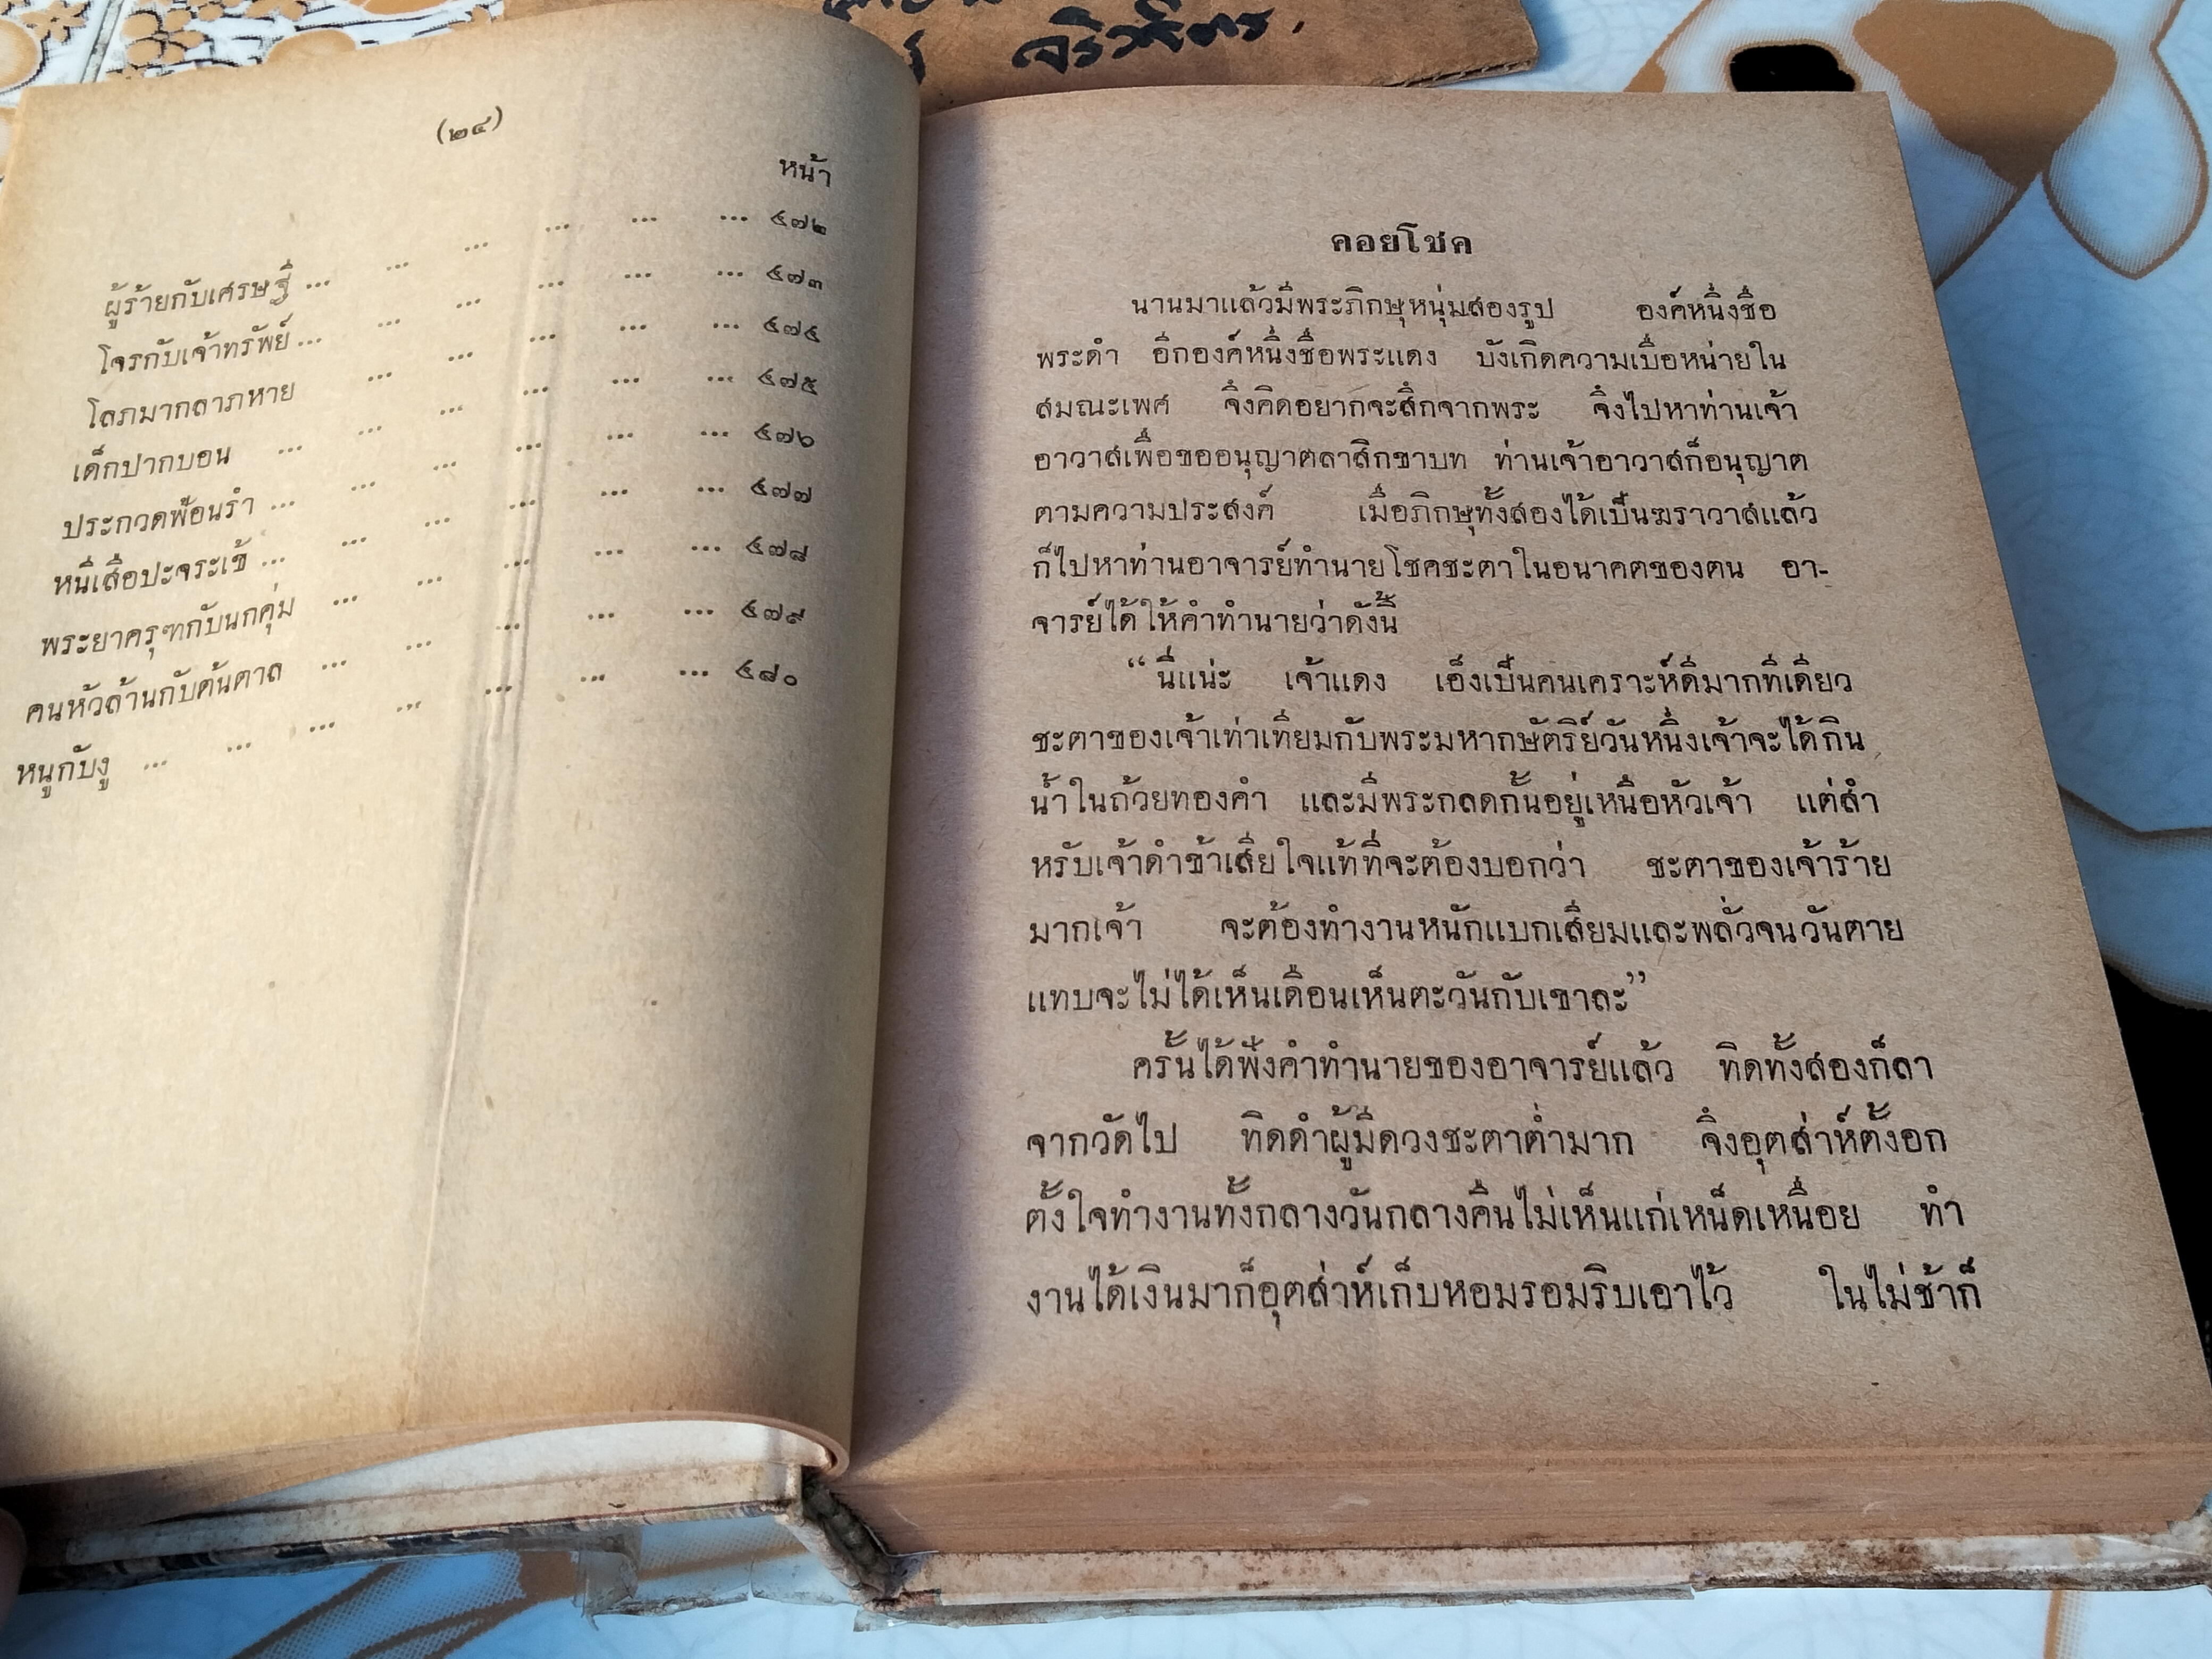 (๒๔)
หน้า
ผู้ร้ายกับเศรษฐี ... ... ... ... ... ... ๔๗๒
โจรกับเจ้าทรัพย์ ... ... ... ... ... ... ๔๗๓
โลภมากลาภหาย ... ... ... ... ... ๔๗๔
เด็กปากบอน ... ... ... ... ... ... ๔๗๕
ประกวดฟ้อนรำ ... ... ... ... ... ... ๔๗๖
หนีเสือปะจระเข้ ... ... ... ... ... ... ๔๗๗
พระยาครุฑกับนกคุ่ม ... ... ... ... ... ๔๗๘
คนหัวล้านกับต้นตาล ... ... ... ... ... ๔๗๙
หนูกับงู ... ... ... ... ... ... ... ๔๘๐
คอยโชค
นานมาแล้วมีพระภิกษุหนุ่มสองรูป องค์หนึ่งชื่อ
พระดำ อีกองค์หนึ่งชื่อพระแดง บังเกิดความเบื่อหน่ายใน
สมณะเพศ จึงคิดอยากจะสึกจากพระ จึงไปหาท่านเจ้า
อาวาสเพื่อขออนุญาตลาสิกขาบท ท่านเจ้าอาวาสก็อนุญาต
ตามความประสงค์ เมื่อภิกษุทั้งสองได้เป็นฆราวาสแล้ว
ก็ไปหาท่านอาจารย์ทำนายโชคชะตาในอนาคตของตน อา-
จารย์ได้ให้คำทำนายว่าดังนี้
“นี่แน่ะ เจ้าแดง เอ็งเป็นคนเคราะห์ดีมากทีเดียว
ชะตาของเจ้าเท่าเทียมกับพระมหากษัตริย์วันหนึ่งเจ้าจะได้กิน
น้ำในถ้วยทองคำ และมีพระกลดกั้นอยู่เหนือหัวเจ้า แต่สำ
หรับเจ้าดำข้าเสียใจแท้ที่จะต้องบอกว่า ชะตาของเจ้าร้าย
มากเจ้า จะต้องทำงานหนักแบกเสียมและพลั่วจนวันตาย
แทบจะไม่ได้เห็นเดือนเห็นตะวันกับเขาละ”
ครั้นได้ฟังคำทำนายของอาจารย์แล้ว ทิดทั้งสองก็ลา
จากวัดไป ทิดดำผู้มีดวงชะตาต่ำมาก จึงอุตส่าห์ตั้งอก
ตั้งใจทำงานทั้งกลางวันกลางคืนไม่เห็นแก่เหน็ดเหนื่อย ทำ
งานได้เงินมาก็อุตส่าห์เก็บหอมรอมริบเอาไว้ ในไม่ช้าก็